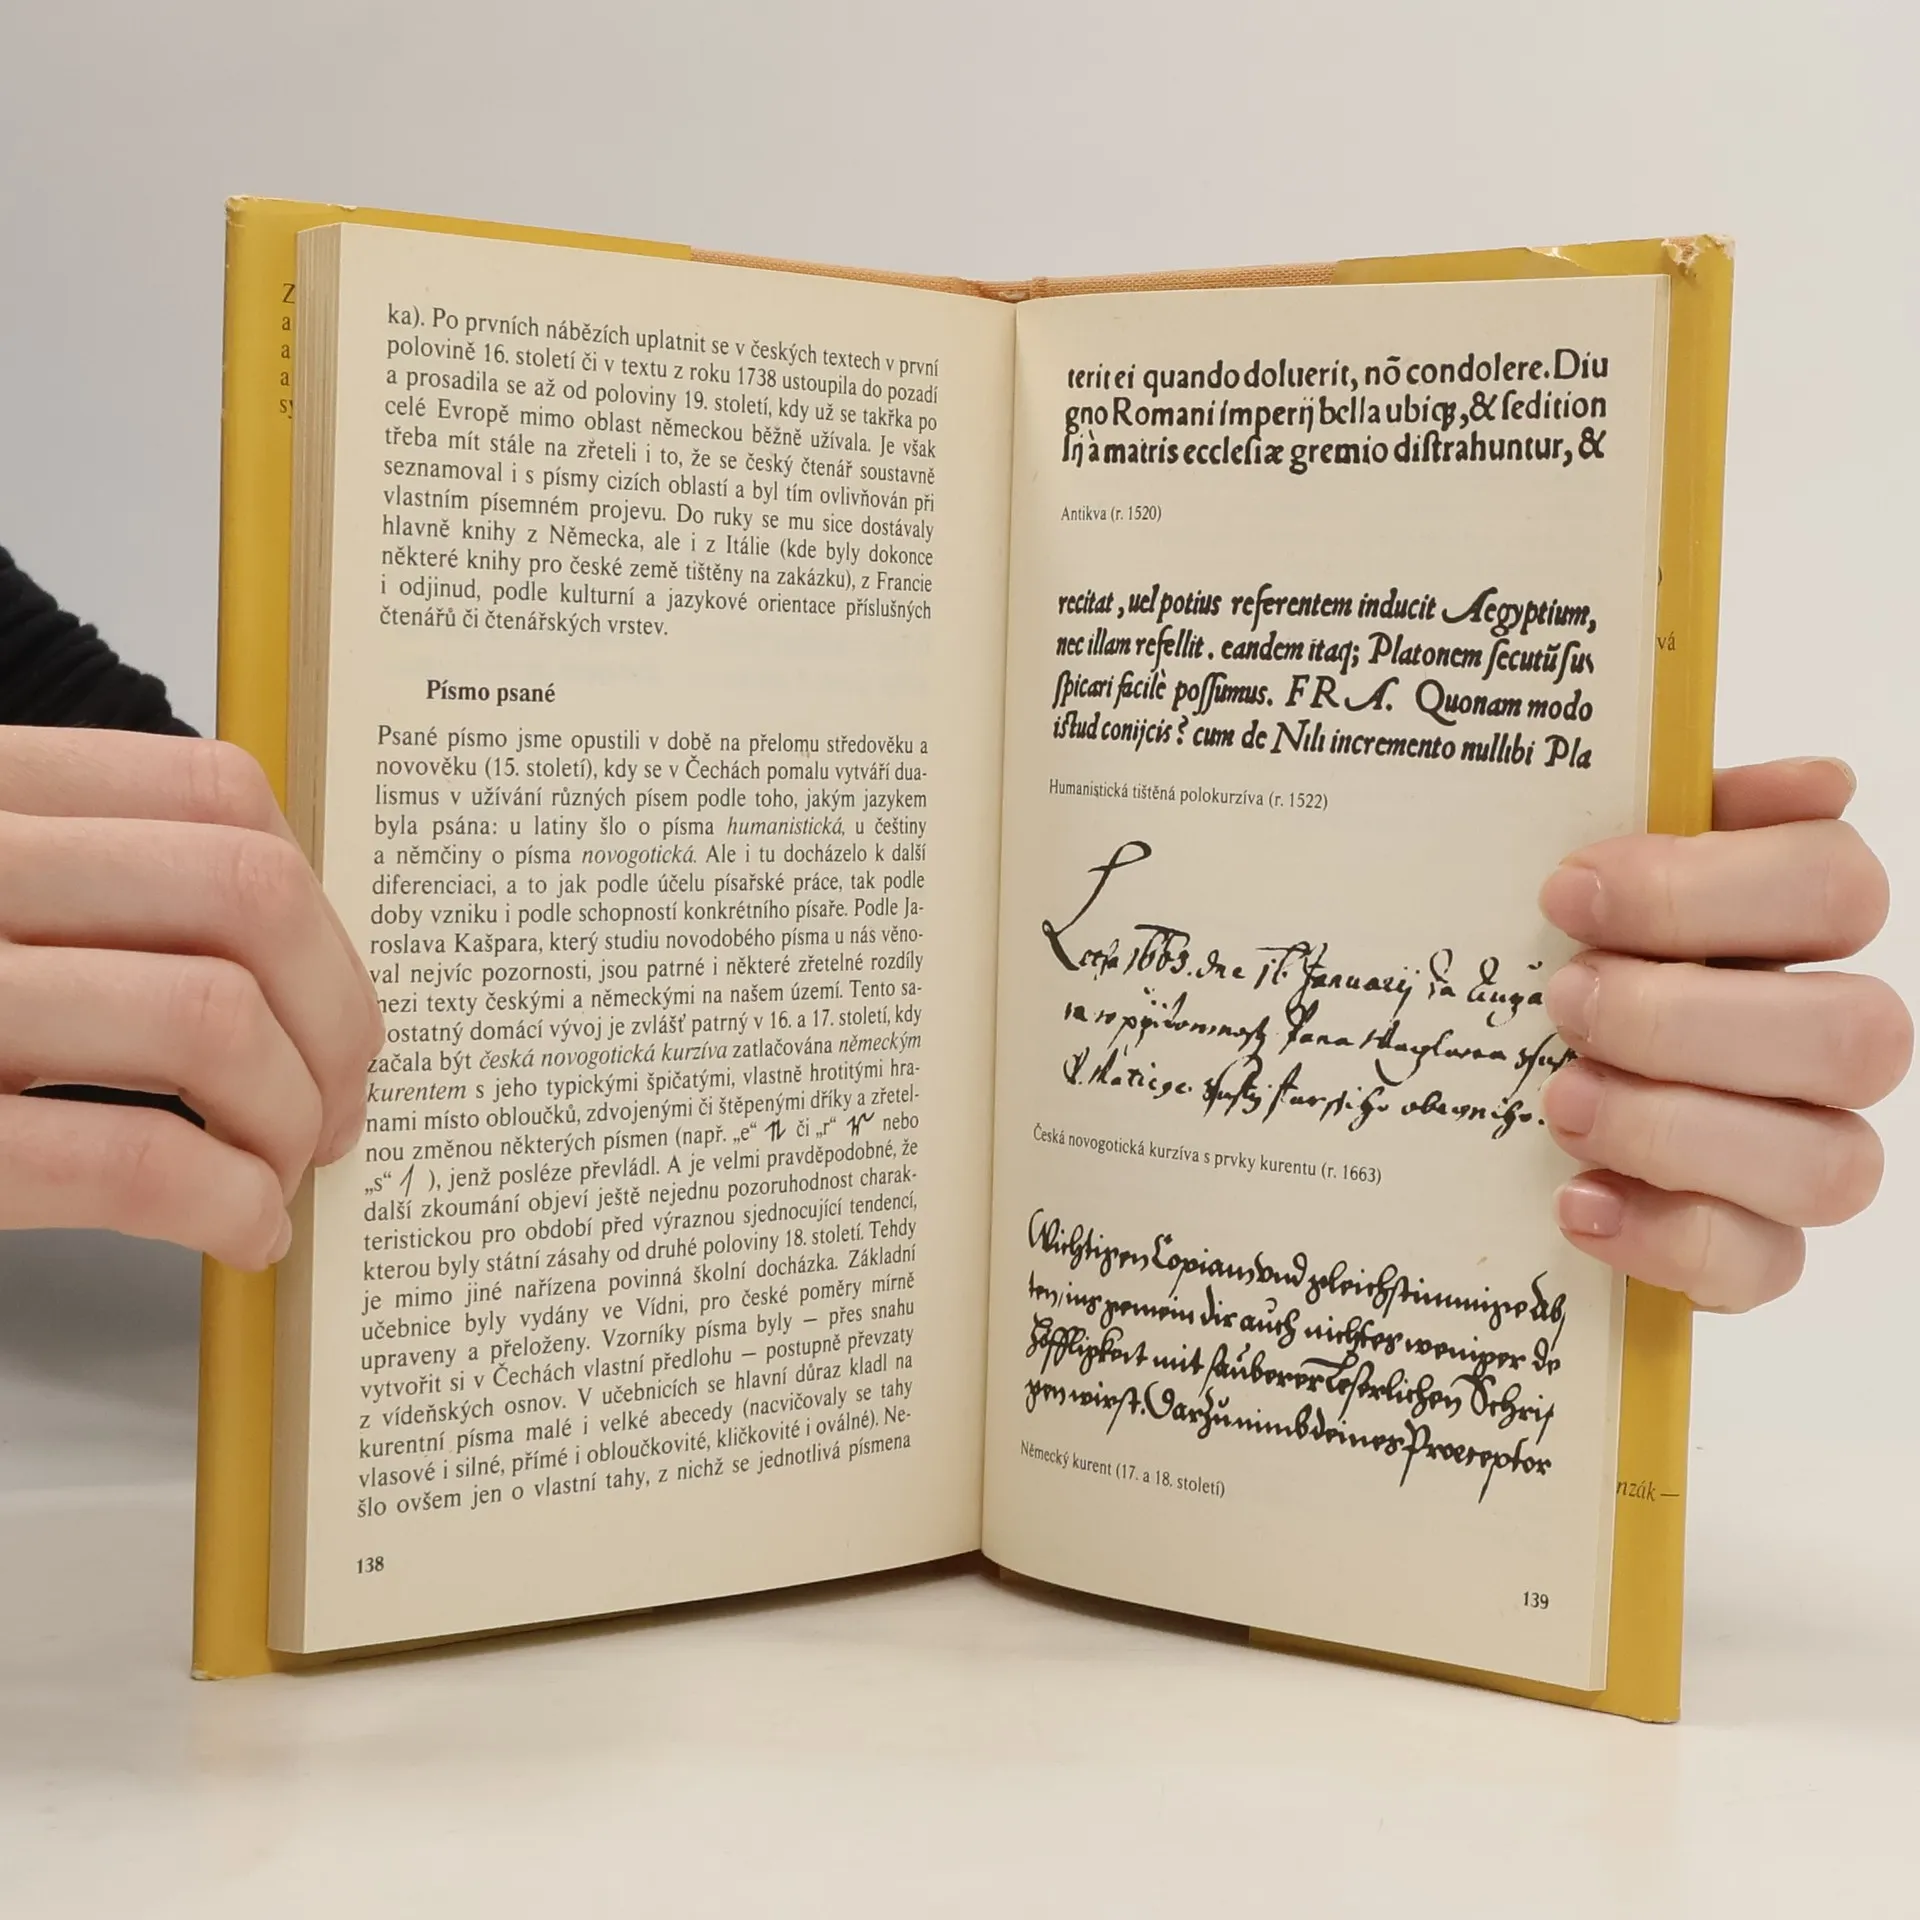 ka). Po prvních nábězích uplatnit se v českých textech v první
polovině 16. století či v textu z roku 1738 ustoupila do pozadí
a prosadila se až od poloviny 19. století, kdy už se takřka po
celé Evropě mimo oblast německou běžně užívala. Je však
třeba mít stále na zřeteli i to, že se český čtenář soustavně
seznamoval i s písmy cizích oblastí a byl tím ovlivňován při
vlastním písemném projevu. Do ruky se mu sice dostávaly
hlavně knihy z Německa, ale i z Itálie (kde byly dokonce
některé knihy pro české země tištěny na zakázku), z Francie
i odjinud, podle kulturní a jazykové orientace příslušných
čtenářů či čtenářských vrstev.
Písmo psané
Psané písmo jsme opustili v době na přelomu středověku a
novověku (15. století), kdy se v Čechách pomalu vytváří dua-
lismus v užívání různých písem podle toho, jakým jazykem
byla psána: u latiny šlo o písma humanistická, u češtiny
a němčiny o písma novogotická. Ale i tu docházelo k další
diferenciaci, a to jak podle účelu písařské práce, tak podle
doby vzniku i podle schopností konkrétního písaře. Podle Ja-
roslava Kašpara, který studiu novodobého písma u nás věno-
val nejvíc pozornosti, jsou patrné i některé zřetelné rozdíly
mezi texty českými a německými na našem území. Tento sa-
ostatný domácí vývoj je zvlášť patrný v 16. a 17. století, kdy
začala být česká novogotická kurzíva zatlačována německým
kurentem s jeho typickými špičatými, vlastně hrotitými hra-
nami místo obloučků, zdvojenými či štěpenými dříky a zřetel-
nou změnou některých písmen (např. „e“ či „r“ nebo
„s“ ), jenž posléze převládl. A je velmi pravděpodobné, že
další zkoumání objeví ještě nejednu pozoruhodnost charak-
teristickou pro období před výraznou sjednocující tendencí,
kterou byly státní zásahy od druhé poloviny 18. století. Tehdy
je mimo jiné nařízena povinná školní docházka. Základní
učebnice byly vydány ve Vídni, pro české poměry mírně
upraveny a přeloženy. Vzorníky písma byly — přes snahu
vytvořit si v Čechách vlastní předlohu — postupně převzaty
z vídeňských osnov. V učebnicích se hlavní důraz kladl na
kurentní písma malé i velké abecedy (nacvičovaly se tahy
vlasové i silné, přímé i obloučkovité, kličkovité i oválné). Ne-
šlo ovšem jen o vlastní tahy, z nichž se jednotlivá písmena
138
terit ei quando doluerit, nõ condolere. Diu
gno Romani imperij bella ubiqꝫ, & ſedition
ſij à matris eccleſiæ gremio diſtrahuntur, &
Antikva (r. 1520)
recitat, uel potius referentem inducit Aegyptium,
nec illam refellit. eandem itaq; Platonem ſecutũ ſus
ſpicari facilè poſſumus. FRA. Quonam modo
iſtud conijcis? cum de Nili incremento nullibi Pla
Humanistická tištěná polokurzíva (r. 1522)
1663. dne Januarij
Pana
Česká novogotická kurzíva s prvky kurentu (r. 1663)
Wichtigen Copian vnd gleichstimmige Ab,
ten, ins gemein dir auch nichtes weniger de
Höffligkeit mit sauberer Leserlichen Schrif
gen wirst. Darzu nimb deines Præceptor
Německý kurent (17. a 18. století)
139
Z
a
a
a
vá
nzák —